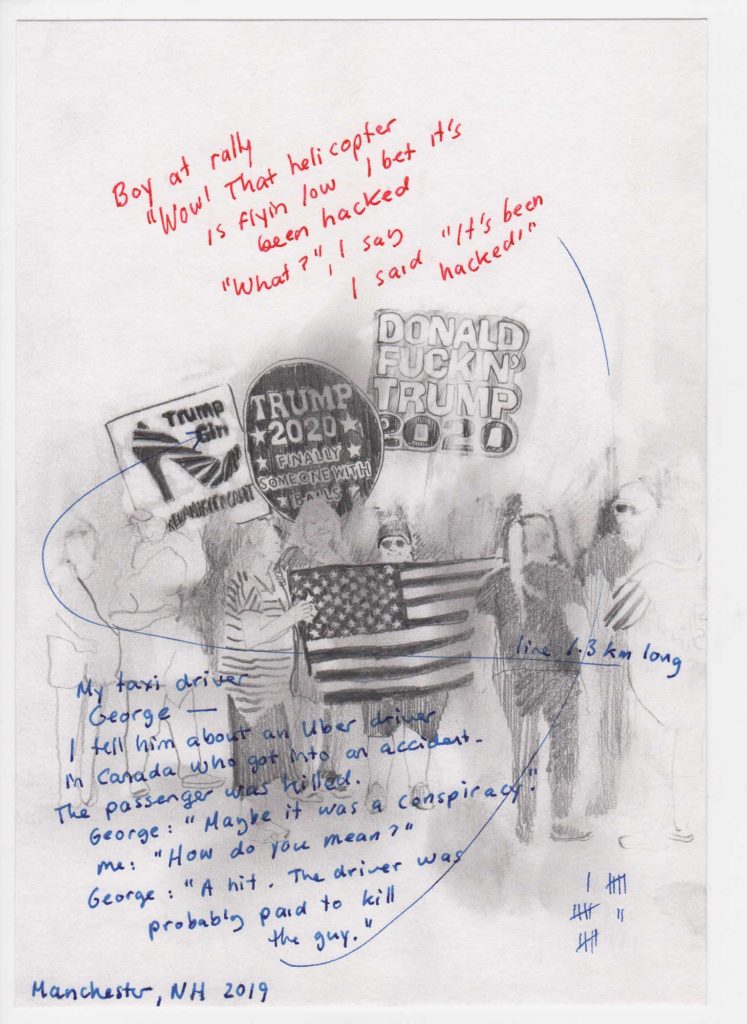 Boy at rally
"Wow! That helicopter
is flyin low I bet it's
been hacked
"What?", I say
I said "It's been
hacked!"
DONALD
FUCKIN'
TRUMP
2020
TRUMP
2020
FINALLY
SOMEONE WITH
BALLS
Trump
Girl
line 1.3 km long
My taxi driver
George —
I tell him about an Uber driver
in Canada who got into an accident -
The passenger was killed.
George: "Maybe it was a conspiracy".
me: "How do you mean?"
George: "A hit. The driver was
probably paid to kill
the guy."
Manchester, NH 2019